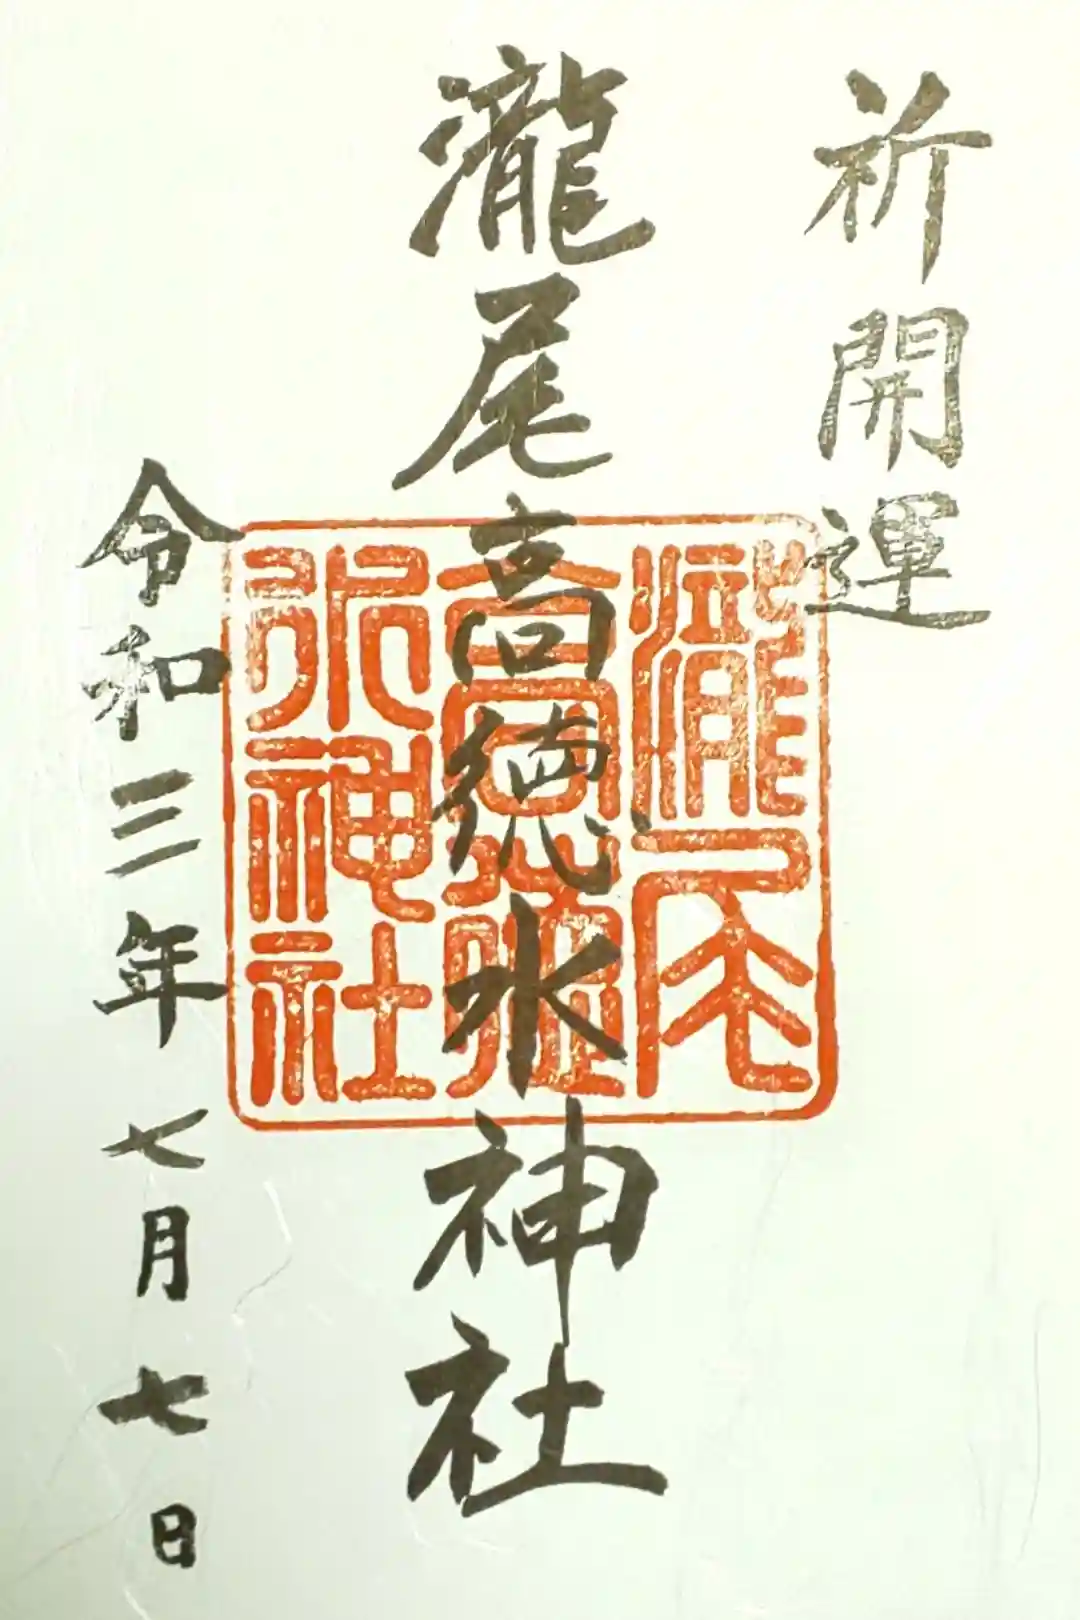 祈開運
瀧尾高徳水神社
瀧尾
高徳
水神社
令和三年七月七日